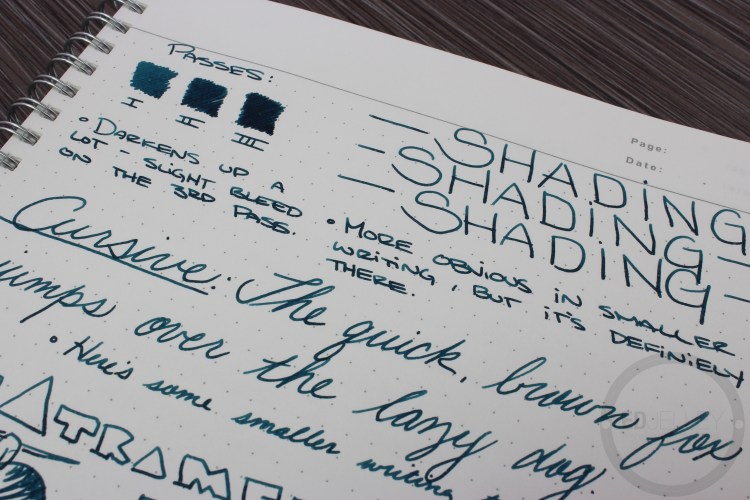 PASSES:
I II III
• DARKENS UP A
LOT - SLIGHT BLEED
ON THE 3RD PASS.
Page:
Date:
— SHADiNG
— SHADiNG —
— SHADiNG —
• MORE OBVIOUS IN SMALLER
WRITING, BUT iT'S DEFiNiELY
THERE.
Cursive: The quick, brown fox
jumps over the lazy dog
• Here's some smaller writing
ATRAME